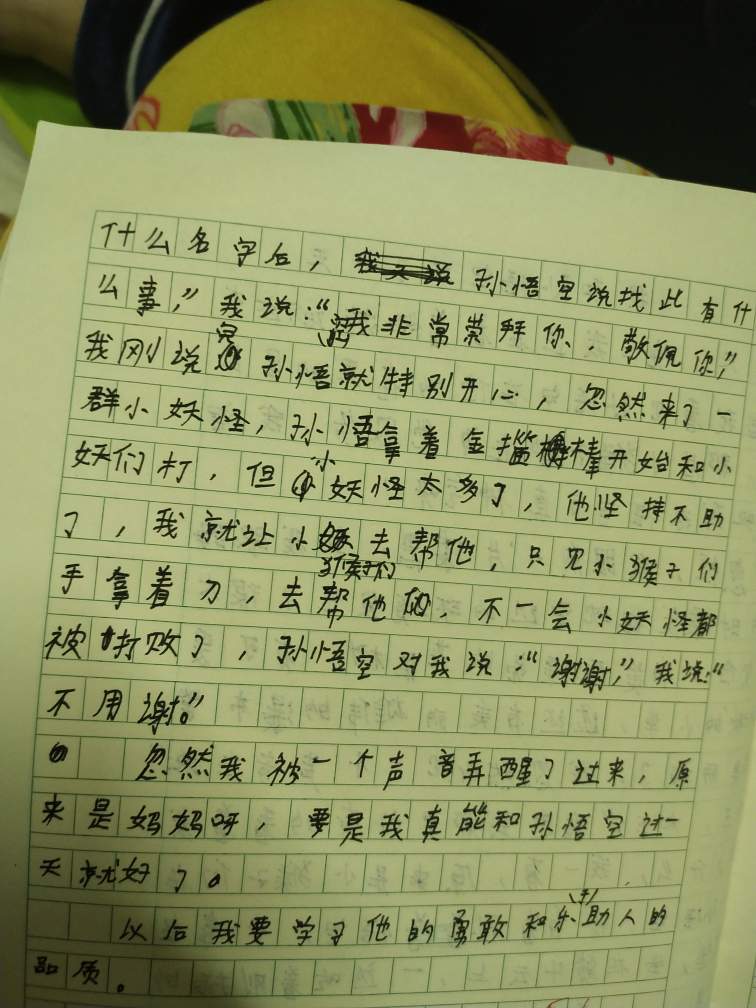 什么名字后，孙悟空说找此有什
么事，”我说：“我非常崇拜你、敬佩你，”
我刚说完孙悟就特别开心，忽然来了一
群小妖怪，孙悟拿着金擂棒开始和小
妖们打，但小妖怪太多了，他坚持不助
了，我就让小猴子们去帮他，只见小猴子们
手拿着刀，去帮他，不一会小妖怪都
被打败了，孙悟空对我说：“谢谢，”我说：“
不用谢。”
忽然我被一个声音弄醒了过来，原
来是妈妈呀，要是我真能和孙悟空过一
天就好了。
以后我要学习他的勇敢和乐于助人的
品质。